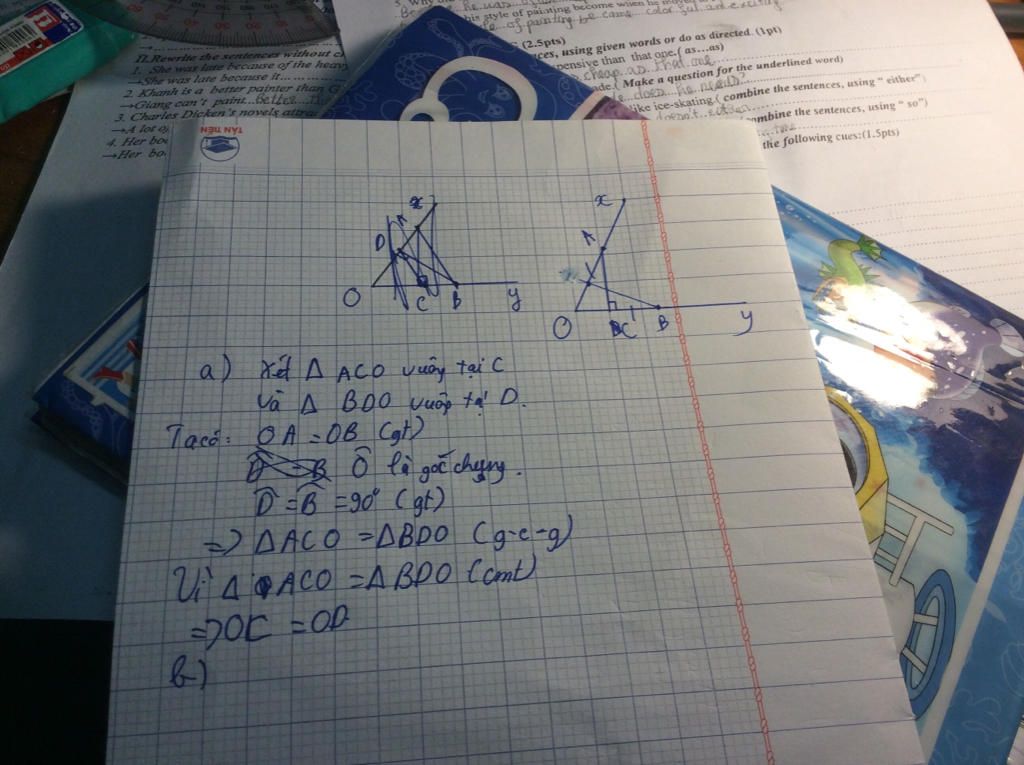 5. Why
his style of painting become when he moved
of painting be came colorful and exciting
(2.5pts)
II.Rewrite the sentences without c
ces, using given words or do as directed. (1pt)
1. She was late because of the heavy
→She was late because it
pensive than that one.( as...as)
cheap as that one
2. Khanh is a better painter than G
ade.( Make a question for the underlined word)
→Giang can't paint better
does he need?
3. Charles Dicken's novels attrac
like ice-skating.( combine the sentences, using " either")
doesn't either
→A lot of
ombine the sentences, using " so")
4. Her boo
the following cues:(1.5pts)
→Her boo
TÂN TIẾN
x
A
D
O
C
B
y
x
A
O
C
B
y
a) Xét Δ ACO vuông tại C
và Δ BDO vuông tại D.
Ta có: OA = OB (gt)
Ô là góc chung.
D̂ = B̂ = 90° (gt)
=> ΔACO = ΔBDO (g-c-g)
Vì Δ ACO = Δ BDO (cmt)
=> OC = OD
b)